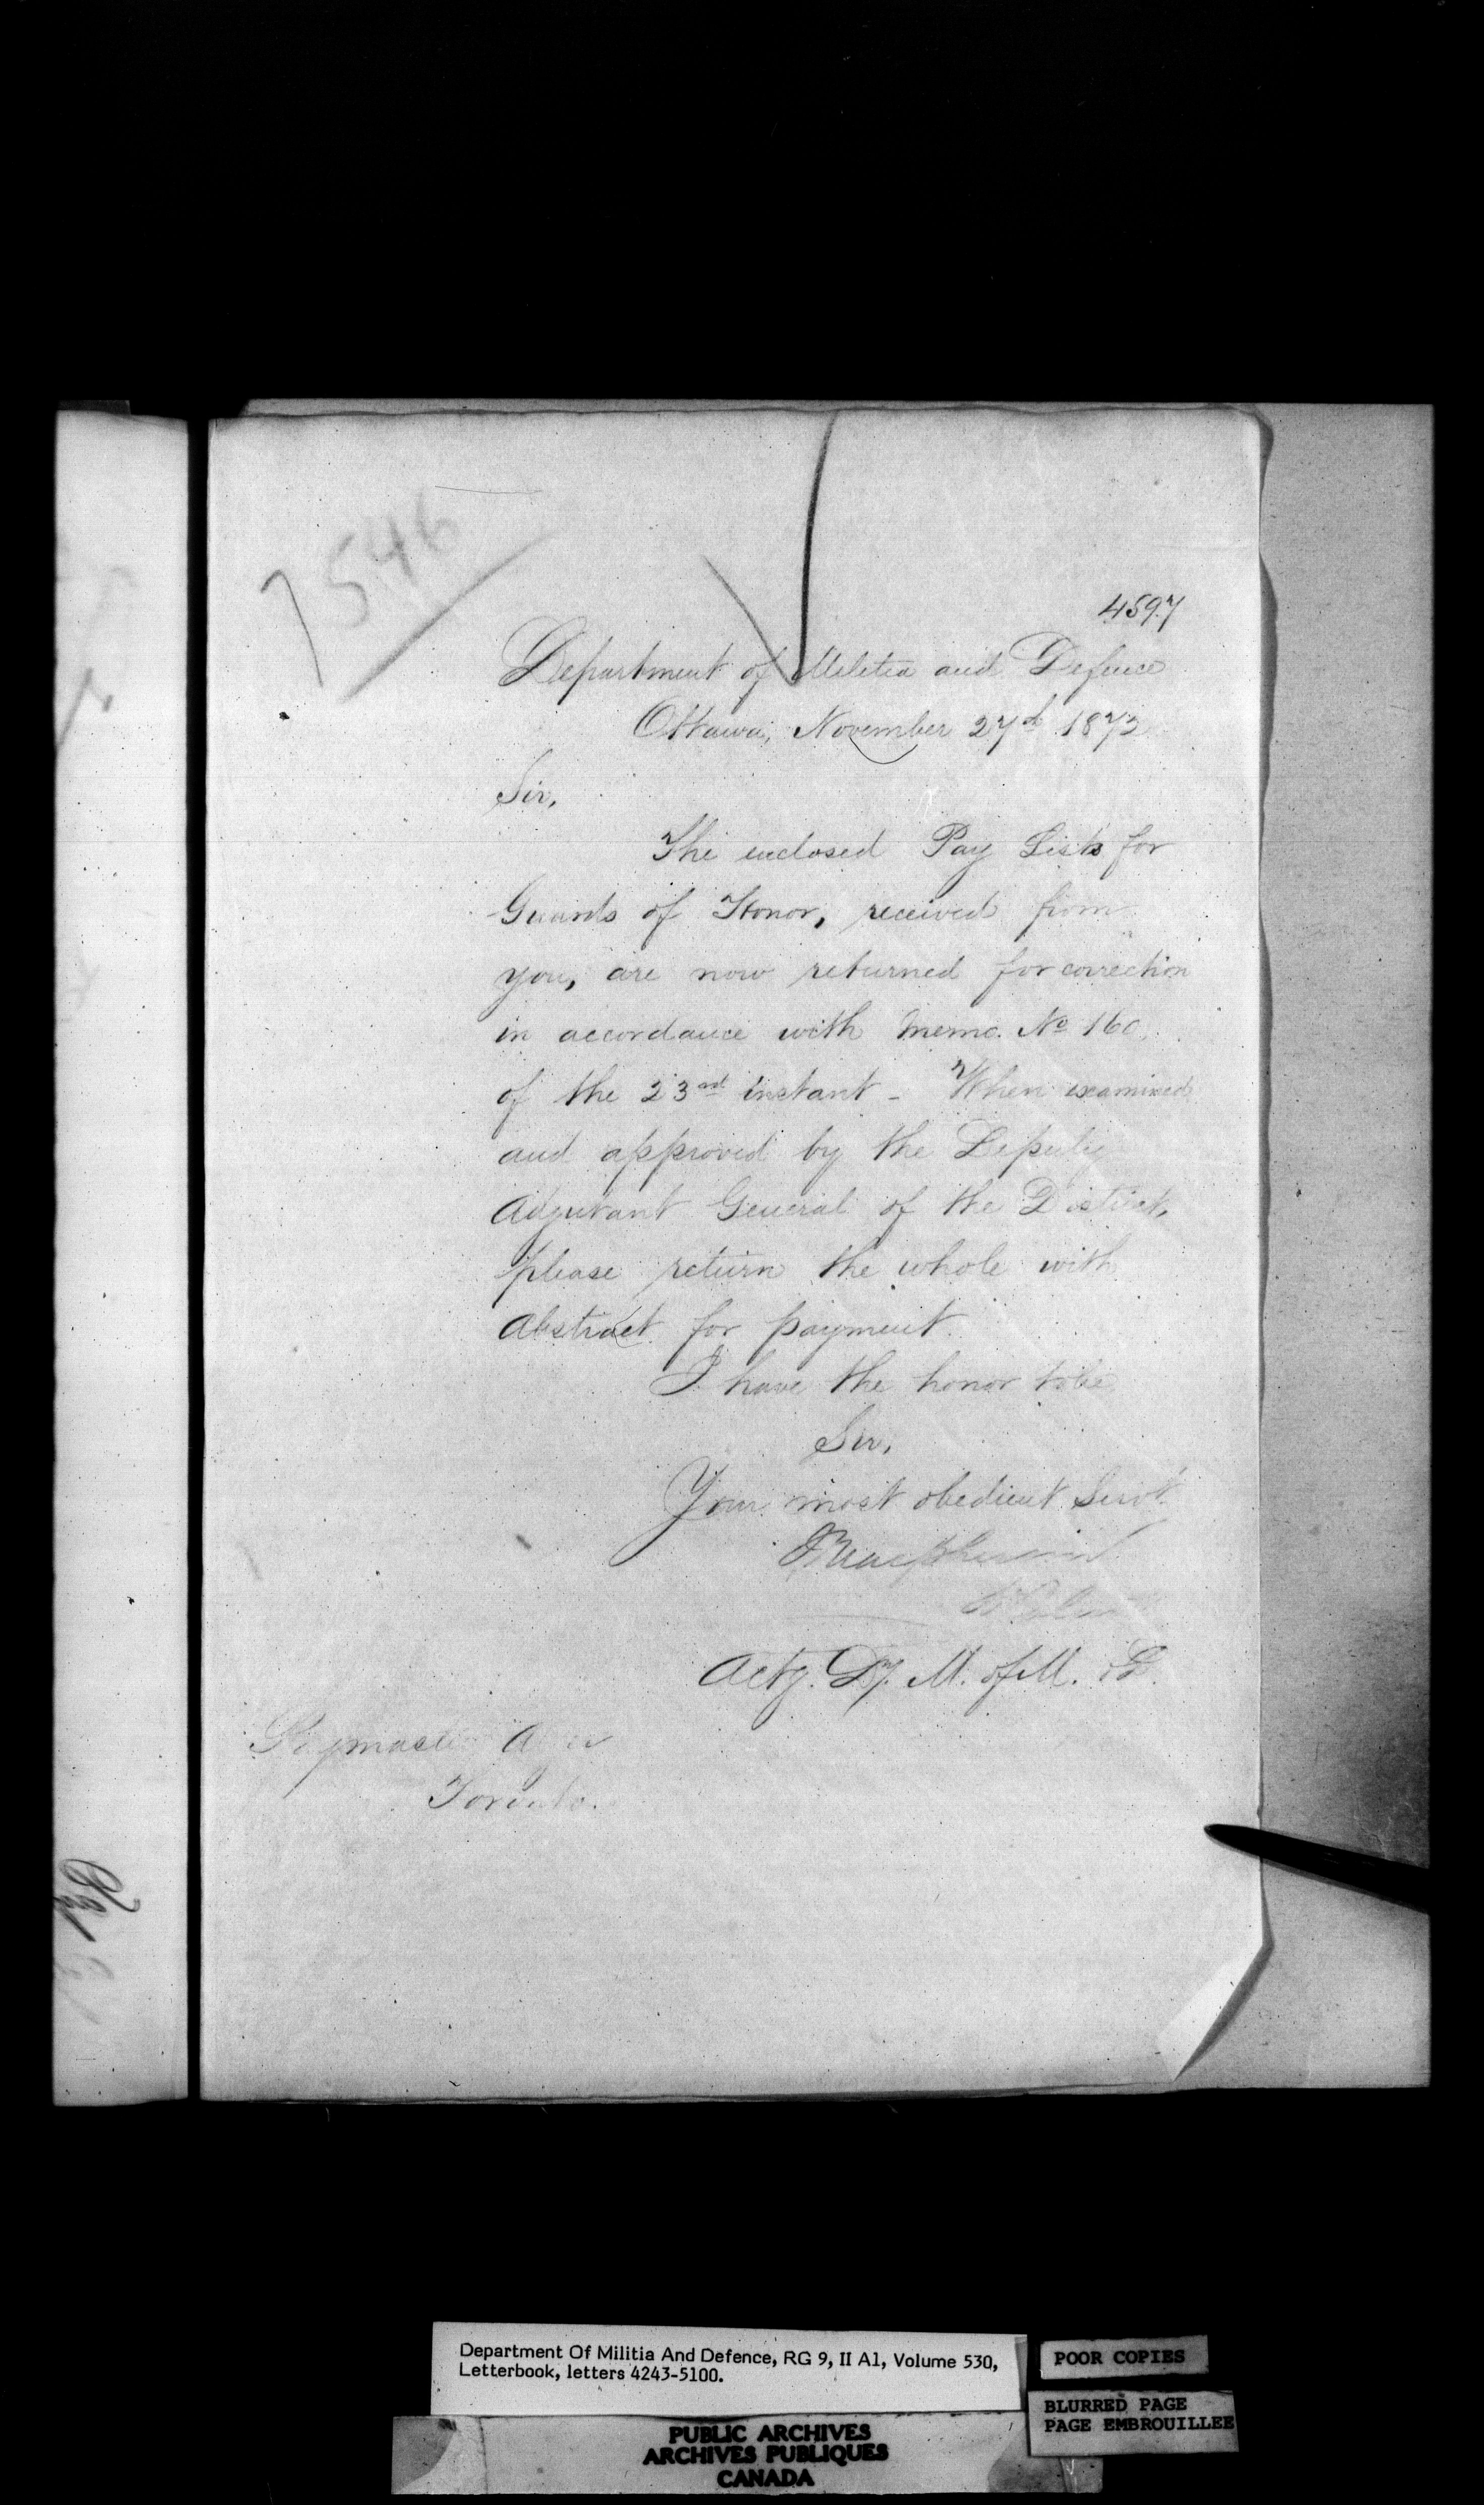 7546
4597
Department of Militia and Defence
Ottawa, November 27th 1873
Sir,
The enclosed Pay Lists for
Guards of Honor, received from
you, are now returned for correction
in accordance with Memo. No 160,
of the 23rd instant - When examined
and approved by the Deputy
Adjutant General of the District,
please return the whole with
Abstract for payment.
I have the honor to be,
Sir,
Your most obedient Servt.
Macpherson
Actg. Dy. M. of M. & D.
Paymaster
Toronto.
Department Of Militia And Defence, RG 9, II A1, Volume 530,
Letterbook, letters 4243-5100.
POOR COPIES
BLURRED PAGE
PAGE EMBROUILLEE
PUBLIC ARCHIVES
ARCHIVES PUBLIQUES
CANADA